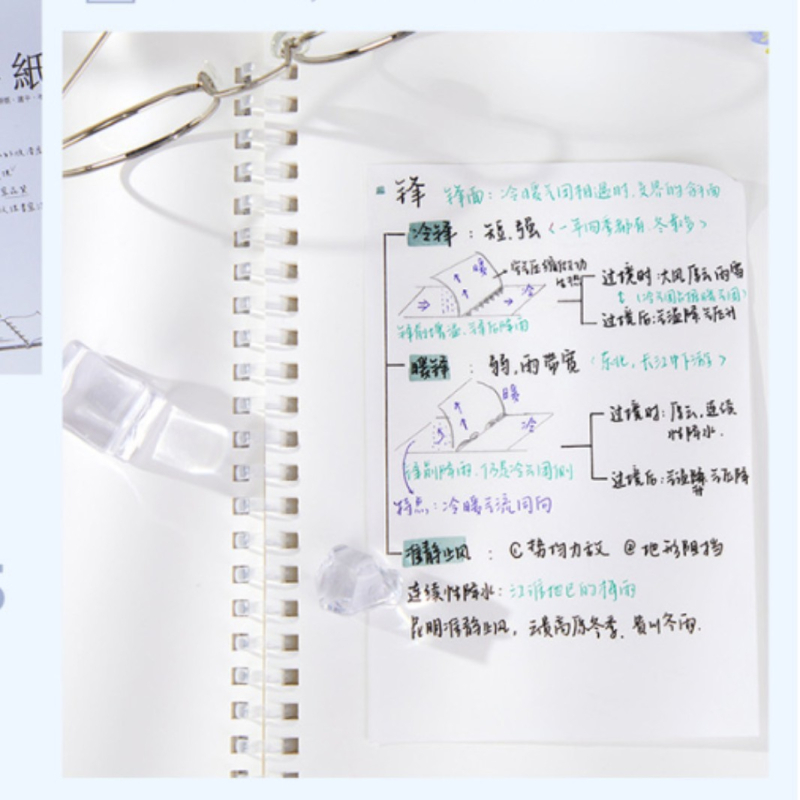 紙
锋 锋面：冷暖气团相遇时、交界的斜面
冷锋：短、强〈一年四季都有、冬春多〉
暖
冷
过境时:大风 厚云 雨雪
(冷气团占据暖气团)
锋前增温、锋后降雨
过境后:气温降 气压升
暖锋：弱,雨带宽〈东北,长江中下游〉
暖
冷
过境时:厚云,连续性降水.
锋前降雨、仍是冷气团侧
过境后:气温 升 气压降
特点:冷暖气流同向
准静止风：①势均力敌 ②地形阻挡
连续性降水:江淮地区的梅雨
昆明准静止风, 云贵高原冬季、贵州冬雨.